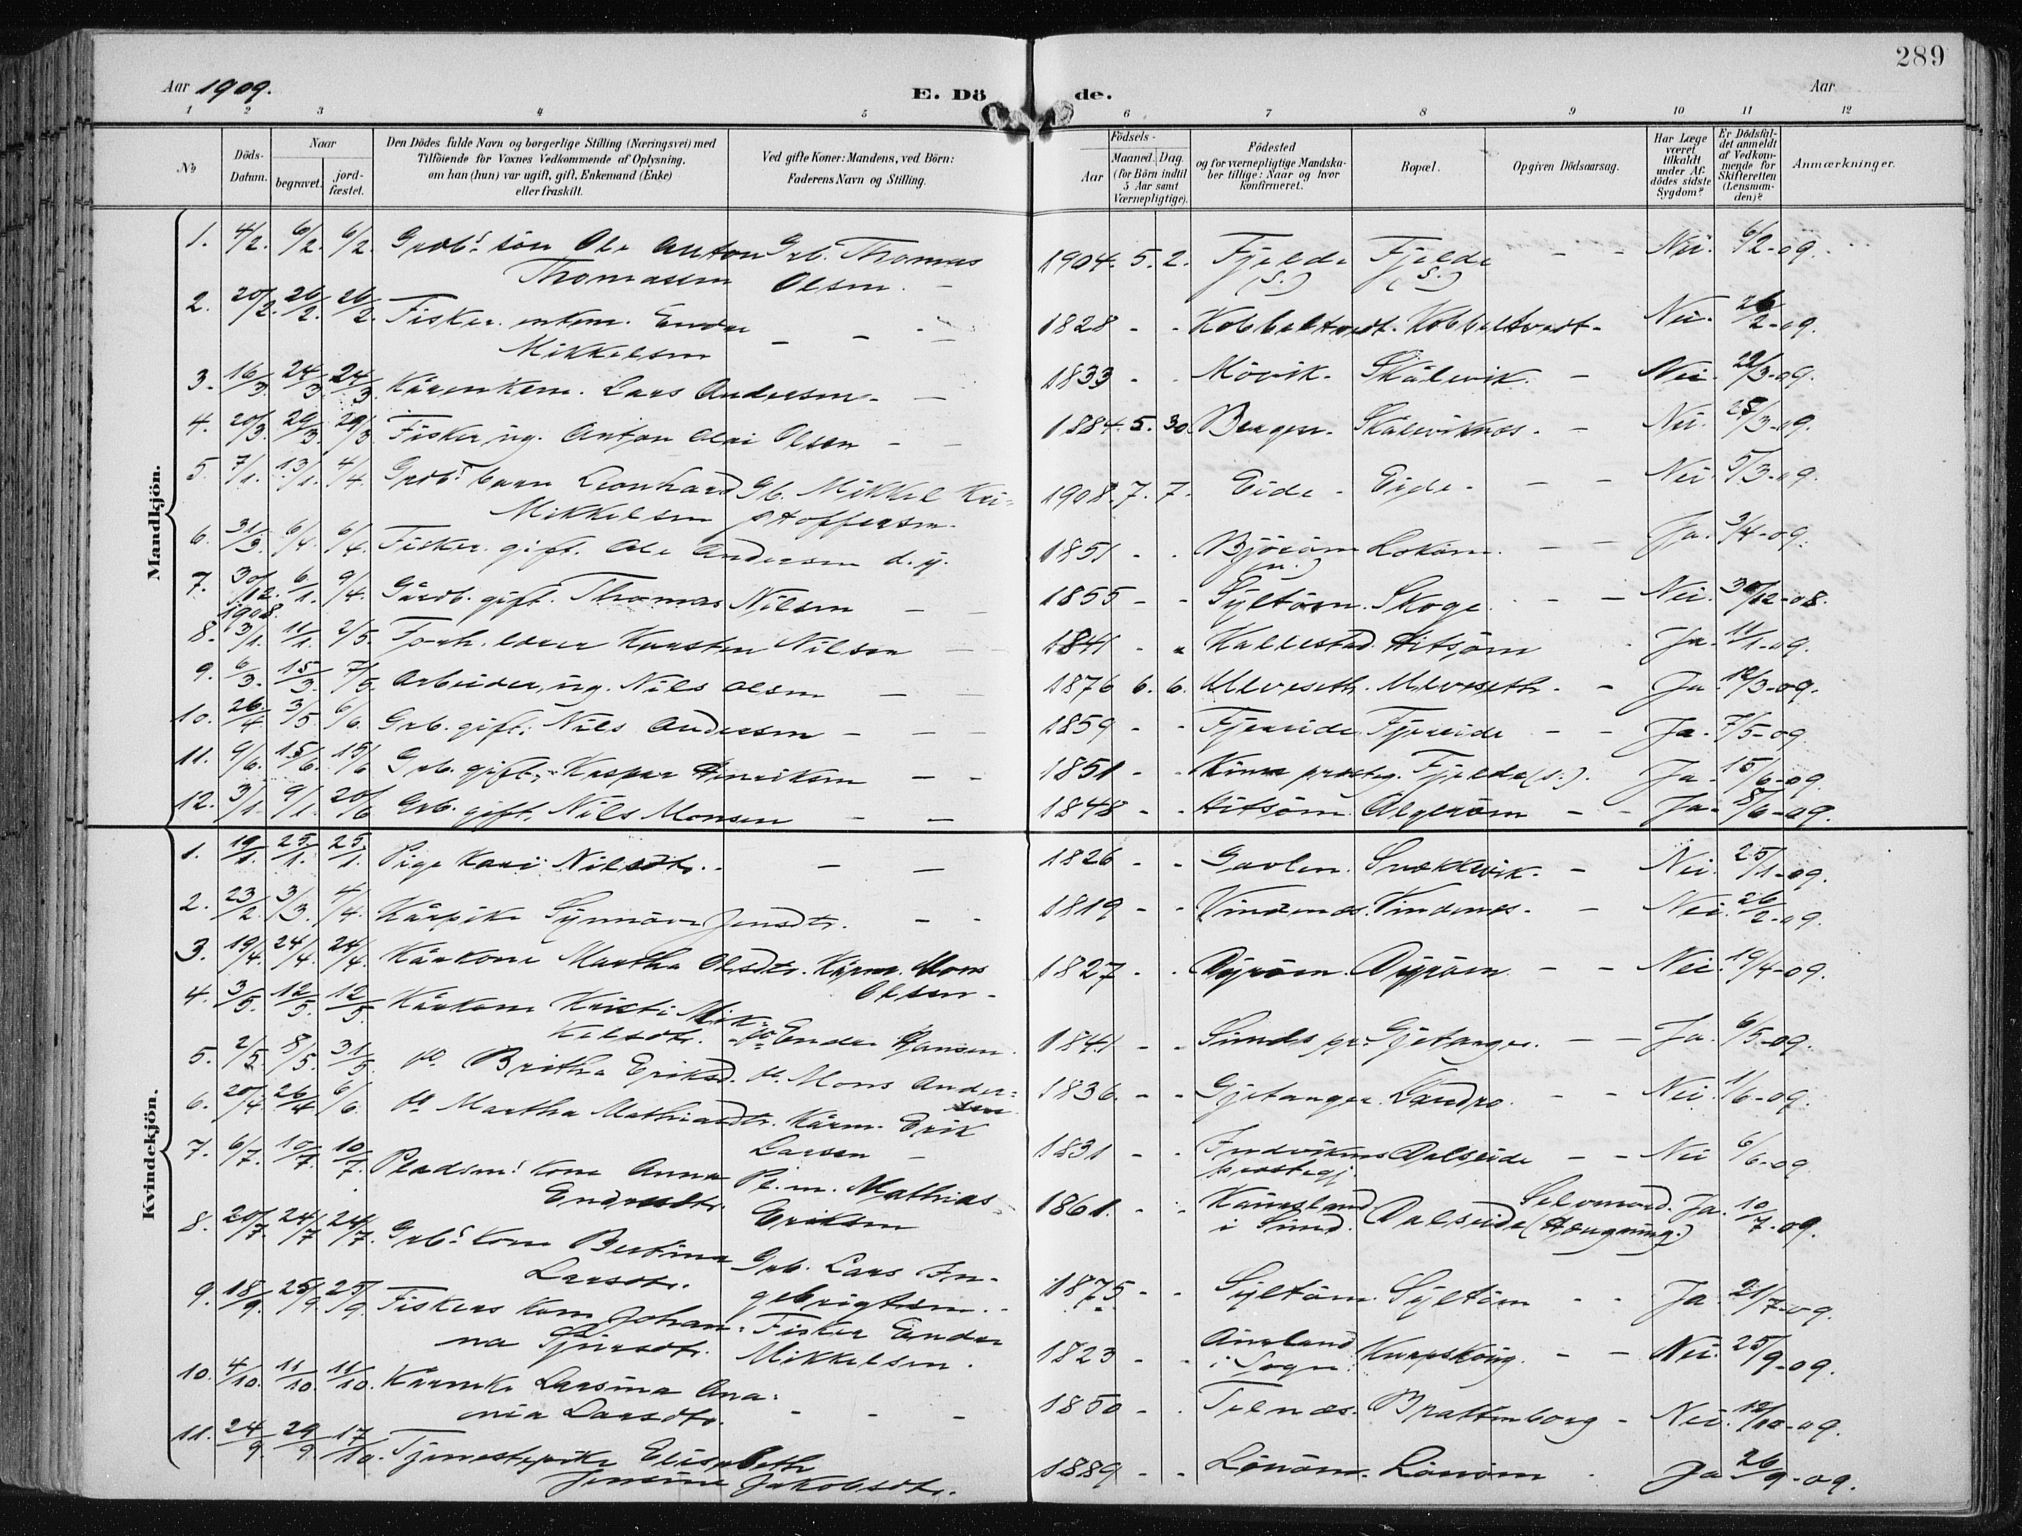 289
Aar 1909.
E. Dö de.
Aar
1 2 3 4 5 6 7 8 9 10 11 12
No
Döds-Datum.
Naar
begravet.
jord-fæstet.
Den Dödes fulde Navn og borgerlige Stilling (Næringsvei) med
Tilföiende for Voxnes Vedkommende af Oplysning,
om han (hun) var ugift, gift, Enkemand (Enke)
eller fraskilt.
Ved gifte Koner: Mandens, ved Börn:
Faderens Navn og Stilling.
Födsels-
Aar
Maaned. Dag.
(for Börn indtil
5 Aar samt
Værnepligtige).
Födested
og for værnepligtige Mandska-
ber tillige: Naar og hvor
konfirmeret.
Bopæl.
Opgiven Dödsaarsag.
Har Læge
været
tilkaldt
under Af-
dödes sidste
Sygdom?
Er Dödsfal-
det anmeldt
af Vedkom-
mende for
Skifteretten
(Lensman-
den)?
Anmærkninger.
Mandkjön.
1. 4/2. 6/2. 6/2. Grdbs sön Ole Anton Grb. Thomas 1904. 5. 2. Fjelde Fjelde - - Nei. 6/2-09.
Thomassen Olsen. - (S.) (S.)
2. 20/2. 26/2. 26/2. Fisker. enkem. Endre - - 1828 - - Kobbeltvedt. Kobbeltvedt- Nei. 26/2-09.
Mikkelsen - - -
3. 16/3. 24/3. 24/3. Kårenkem. Lars Andersen. - 1833 - - Mövik. Skålevik. - Nei. 22/3-09.
4. 20/3. 29/3. 29/3 Fisker, ug. Anton Olai Olsen - - 1884. 5. 30. Bergen. Skåleviknes. - Nei. 25/3-09.
5. 7/1. 13/1. 4/4. Grdbs barn Leonhard Gb. Mikkel Kri- 1908. 7. 7. Eide - Eide. - - Nei 5/3-09.
Mikkelsen stoffersen.
6. 31/3. 6/4. 6/4. Fisker. gift. Ole Andersen d. y. 1851 - - Björöen Loköen. - - Ja. 3/4-09.
(n.)
7. 30/12. 6/1. 9/4. Gårdb. gift. Thomas Nilsen - - 1855 - - Syltöen. Skoge. - - Nei. 30/12-08.
1908.
8. 3/1. 11/1. 2/5. Forh. lærer Karsten Nilsen - - 1841 - - Kallestad. Hitsöen Ja. 11/1-09.
9. 6/3. 15/3. 7/5. Arbeider, ug. Nils Olsen - - 1876 6. 6. Ulveseth. Ulveseth. - Ja. 10/3-09.
10. 26/4 3/5. 6/6. Grb. gift. Nils Andersen - - - 1859 - - Fjæreide Fjæreide - - Ja. 7/5-09.
11. 9/6. 15/6. 15/6 Grb. gift. Kaspar Henriksen - - 1851 - - Kinn præsteg. Fjelde (s.). Ja - 15/6-09.
12. 3/1. 9/1. 20/6 Grb. gift. Nils Monsen - - 1848 - - Hitsöen Algeröen - - Ja - 8/6-09.
Kvindekjön.
1. 19/1. 25/1. 25/1. Pige Kari Nilsdtr. - - - 1826 - - Gavlen. Snekkevik. - Nei. 25/1-09.
2. 23/2. 3/3. 4/4. Kårpike Synnöve Jensdtr. - - 1819 - - Vindenes. Vindenes. - Nei. 26/2-09.
3. 19/4. 24/4. 24/4. Kårkone Martha Olsdtr. Kårm. Mons 1827 - - Dyröen. Dyröen. - - Nei. 19/4-09.
Olsen -
4. 3/5. 12/5. 12/5. Kårkone Kristi Mik- 1841 - - Sunds pr. Gjetanger. - - Ja. 6/5-09.
kelsdtr. do Endre Hansen.
5. 2/5. 8/5. 31/5. do Britha Eriksd. do. Mons Ander- 1836. - - Gjetanger. Landro. - - Nei. 1/6-09.
sen
6. 20/4. 26/4 6/6. do Martha Mathiasdtr. Kårm. Erik 1831 - - Indvikens Dalseide - - Nei 6/6-09.
Larsen - præstegj.
7. 6/7. 10/7. 10/7. Pladsms kone Anna Pl. m. Mathias 1861. - - i Sund. Dalseide Selvmord. (Hængning.) Ja. 10/7-09.
Endresdtr. Eriksen
8. 20/7 24/7 24/7. Grbs kone Bertina Grb. Lars In- 1875 - - Syltöen. Syltöen - - Ja. 21/7-09.
Larsdtr. gebrigtsen. -
9. 18/9. 25/9. 25/9. Fiskers kone Johan- Fisker Endre 1823 - - Aurland Knapskoug. - - Nei. 25/9-09.
na Sjursdtr. Mikkelsen. i Sogn.
10. 4/10. 11/10. 11/10. Kårenke Larsina Ana- 1850 - - Telnes. Brattenborg - Nei. 12/10-09.
nia Larsdtr. - - -
11. 24/9. 29/9. 17/10. Tjenestepike Elisabeth 1889 - - Lönöen. Lönöen Ja 26/9-09.
Jensine Jakobsdtr.